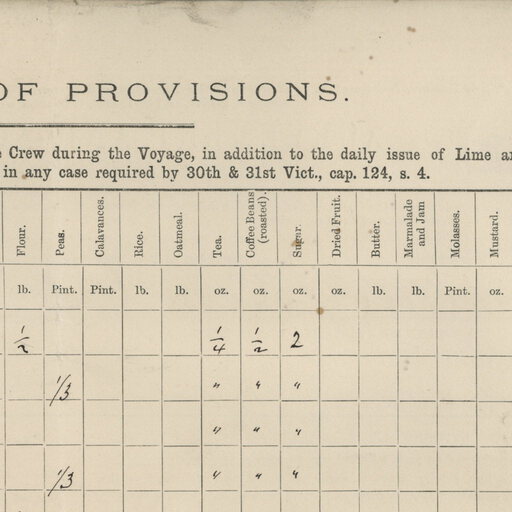 OF PROVISIONS.
Crew during the Voyage, in addition to the daily issue of Lime
in any case required by 30th & 31st Vict., cap. 124, s. 4.
Flour. Peas. Calavances. Rice. Oatmeal. Tea. Coffee Beans (roasted). Sugar. Dried Fruit. Butter. Marmalade and Jam Molasses. Mustard.
lb. Pint. Pint. lb. lb. oz. oz. oz. oz. lb. lb. Pint. oz.
1/2 1/4 1/2 2
1/3 " " "
" " "
1/3 " " "